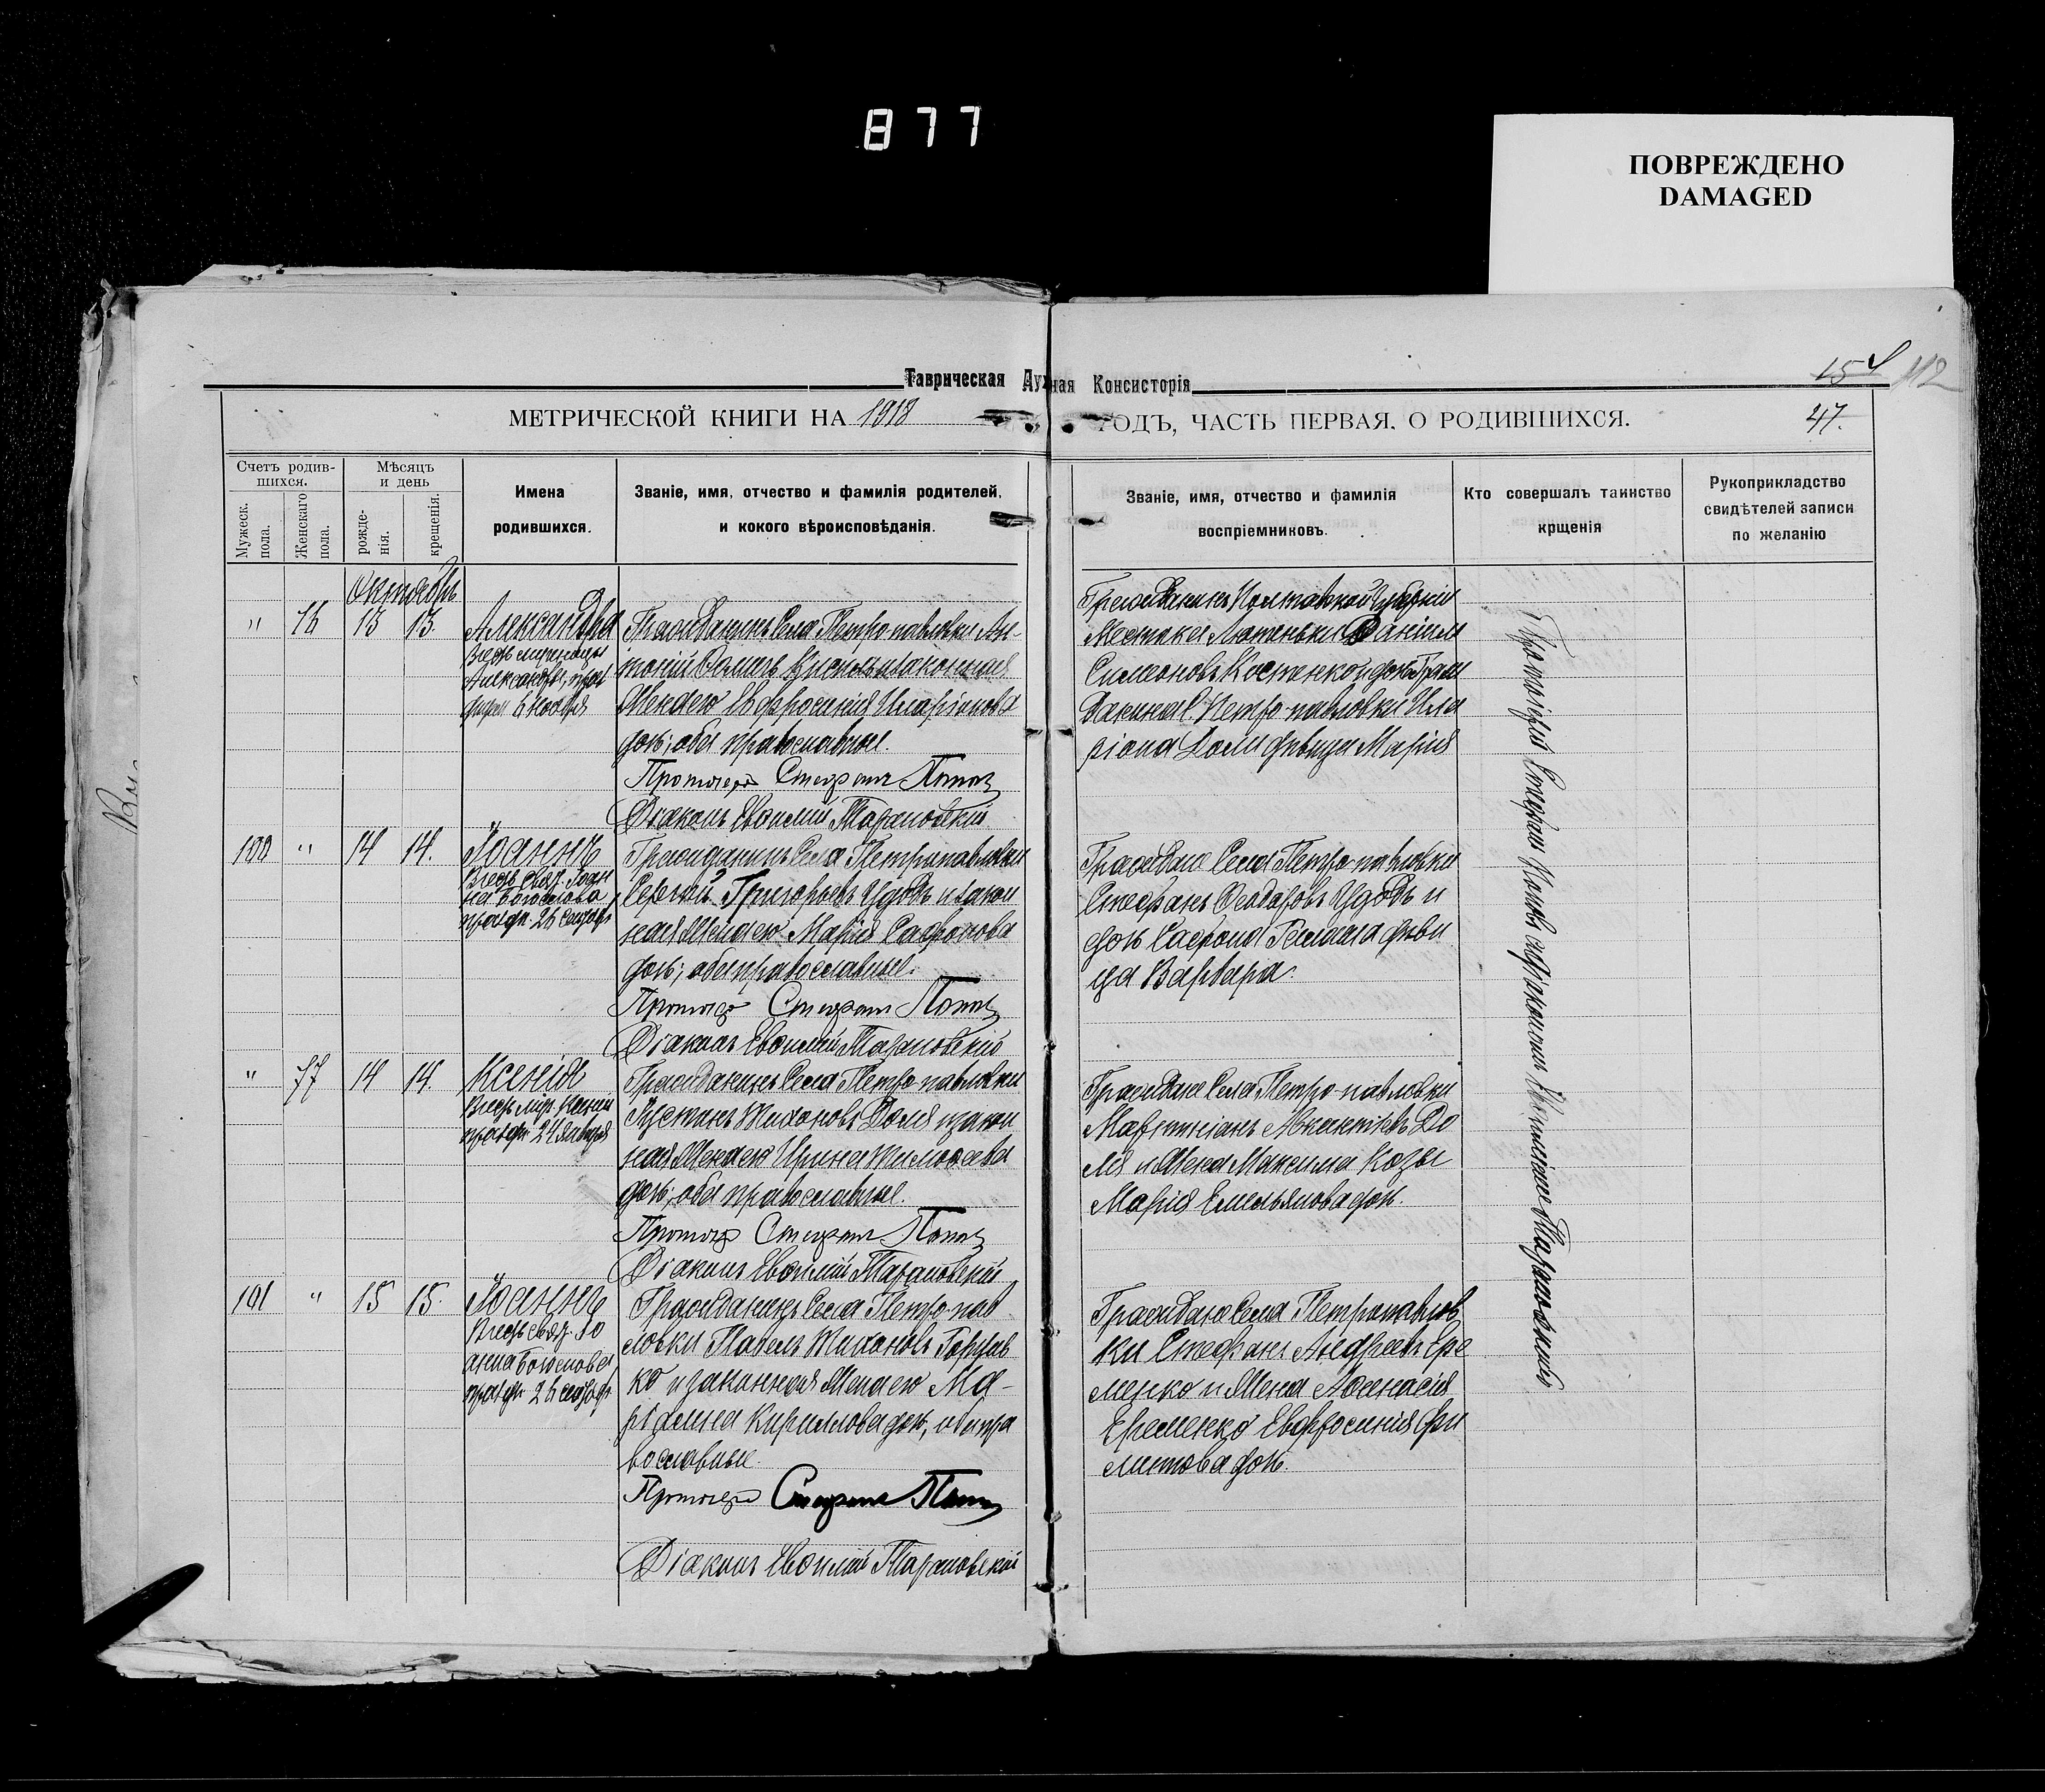 877
ПОВРЕЖДЕНО
DAMAGED
Таврическая Духная Консисторія
154 112
МЕТРИЧЕСКОЙ КНИГИ НА 1918
ГОДЪ, ЧАСТЬ ПЕРВАЯ, О РОДИВШИХСЯ.
47.
Счетъ родив-
шихся.
Мужеск.
пола.
Женскаго
пола.
Мѣсяцъ
и день
рожде-
нія.
крещенія.
Имена
родившихся.
Званіе, имя, отчество и фамилія родителей,
и кокого вѣроисповѣданія.
Званіе, имя, отчество и фамилія
воспріемниковъ.
Кто совершалъ таинство
крщенія
Рукоприкладство
свидѣтелей записи
по желанію
Октябрь
" 76 13 13.
Александра
Александры,
6 ноября
Гражданинъ Села Петро-павловки Ан-
тоній и законная
Жена его Евфросинія Иларіонова
дочь; оба православные.
Протоіерей Стефанъ Поповъ
Діаконъ Евѳимій Тарановскій
Гражданинъ Полтавской Губерніи
Местечка Лютеньки Даніилъ
Симеоновъ Костенко и дочь Граж
данина С. Петро-павловки Ила
ріона Доли девица Марія
100 " 14 14.
Іоаннъ
Въ честь Іоан
на Богослова
26 Сентяб
Гражданинъ Села Петропавловки
Сергій Григорьевъ Удодъ и закон
ная Жена его Марія Сафронова
дочь; оба православные.
Протоіер Стефанъ Поповъ
Діаконъ Евѳимій Тарановскій
Граждане Села Петро-павловки
Стефанъ Ѳеодоровъ Удодъ и
дочь Сафрона девы
ца Варвара.
" 77 14 14.
Ксенія
Въ честь Ксеніи
24 января
Гражданинъ Села Петро-павловки
Іустинъ Тихоновъ Доля и закон
ная Жена его Ирина Тимоѳеева
дочь; оба православные.
Протоіер Стефанъ Поповъ
Діаконъ Евѳимій Тарановскій
Граждане Села Петро-павловки
Мартиніанъ До
ля и Жена Максима Козы
Марія Емельянова дочь.
101 " 15 15.
Іоаннъ
Въ честь Іо
анна Богослова
26 сентяб
Гражданинъ Села Петро-пав
ловки Павелъ Тихоновъ
ко и законная Жена его Ма-
ріамна Кириллова дочь, оба пра
вославные.
Протоіерей Стефанъ Поповъ
Діаконъ Евѳимій Тарановскій
Граждане Села Петропавлов
ки Стефанъ Андреевъ Ере
менко и Жена Аѳанасія
Еременко Евфросинія Фи
липова дочь.
Протоіерей Стефанъ Поповъ съ діакономъ Евѳиміемъ Тарановскимъ